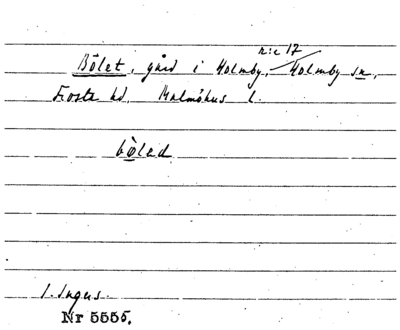 n:o 17
Bölet, gård i Holmby, Holmby sn,
Frosta hd. Malmöhus l.
bölad
I. Ingers.
Nr 5555.